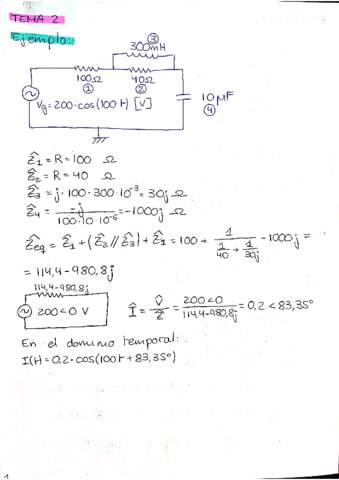 TEMA 2
Ejemplo:
③
300mH
100Ω 40Ω
① ②
Vg=200·cos(100t) [V]
10μF
④
Ẑ1 = R = 100 Ω
Ẑ2 = R = 40 Ω
Ẑ3 = j·100·300·10^-3 = 30j Ω
Ẑ4 = -j / 100·10·10^-6 = -1000j Ω
Ẑeq = Ẑ1 + (Ẑ2 // Ẑ3) + Ẑ4 = 100 + 1 / (1/40 + 1/30j) - 1000j =
= 114,4 - 980,8j
114,4 - 980,8j
200<0 V
Î = V̂/Ẑ = 200<0 / 114,4-980,8j = 0,2 < 83,35º
En el dominio temporal:
I(t) = 0,2·cos(100t + 83,35º)
1